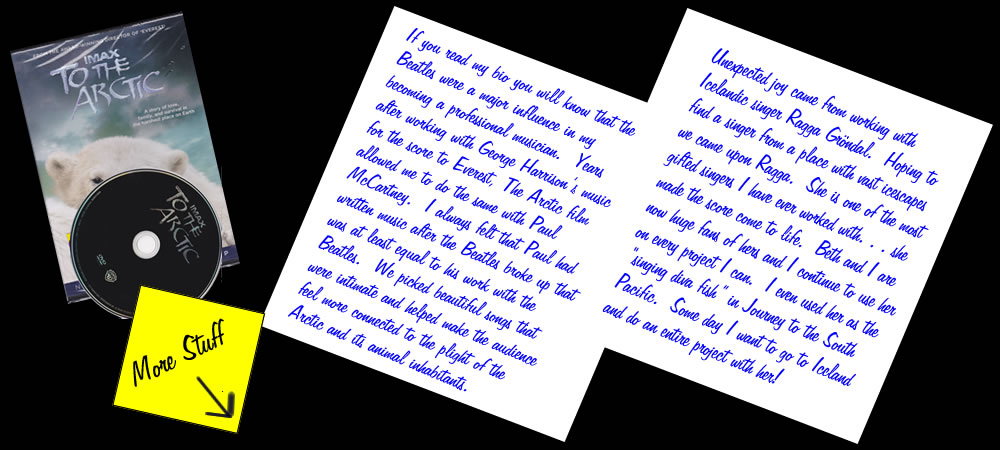 FROM THE AWARD-WINNING DIRECTOR OF "EVEREST"
IMAX
TO THE
ARCTIC
A story of love,
family, and survival in
the hardest place on Earth
IMAX
TO THE
ARCTIC
DVD
More Stuff
If you read my bio you will know that the
Beatles were a major influence in my
becoming a professional musician. Years
after working with George Harrison's music
for the score to Everest, The Arctic film
allowed me to do the same with Paul
McCartney. I always felt that Paul had
written music after the Beatles broke up that
was at least equal to his work with the
Beatles. We picked beautiful songs that
were intimate and helped make the audience
feel more connected to the plight of the
Arctic and its animal inhabitants.
Unexpected joy came from working with
Icelandic singer Ragga Gröndal. Hoping to
find a singer from a place with vast icescapes
we came upon Ragga. She is one of the most
gifted singers I have ever worked with. . . she
made the score come to life. Beth and I are
now huge fans of hers and I continue to use her
on every project I can. I even used her as the
"singing diva fish" in Journey to the South
Pacific. Some day I want to go to Iceland
and do an entire project with her!